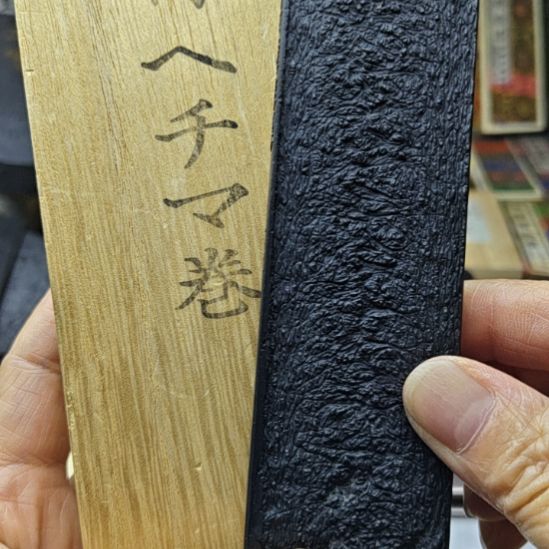 ヘチマ巻